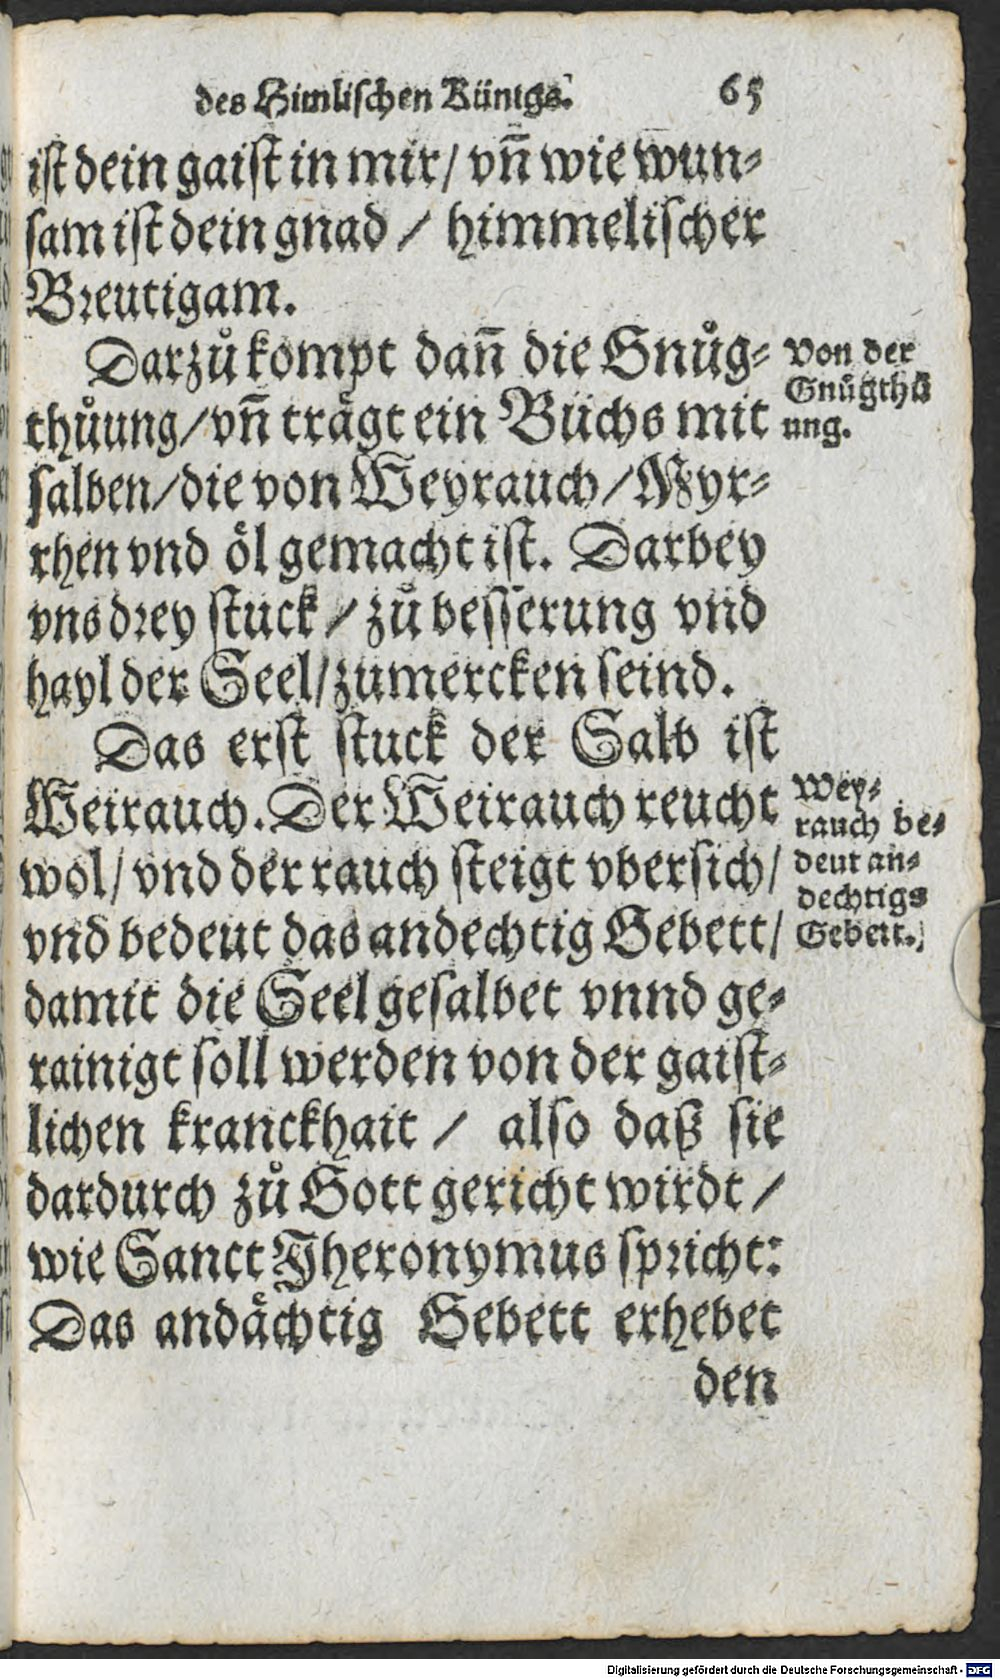 des Himlischen Künigs. 65
ist dein gaist in mir / vn̄ wie wun-
sam ist dein gnad / himmelischer
Breutigam.
Darzů kompt dan̄ die Gnůg-
thůung / vn̄ trågt ein Büchs mit
salben / die von Weyrauch / Myr-
rhen vnd öl gemacht ist. Darbey
vns drey stuck / zů besserung vnd
hayl der Seel / zumercken seind.
Von der
Gnůgthů
ung.
Das erst stuck der Salb ist
Weirauch. Der Weirauch reucht
wol / vnd der rauch steigt vbersich /
vnd bedeut das andechtig Gebett /
damit die Seel gesalbet vnnd ge-
rainigt soll werden von der gaist-
lichen kranckhait / also daß sie
dardurch zů Gott gericht wirdt /
wie Sanct Jheronymus spricht:
Das andåchtig Gebett erhebet
Wey-
rauch be-
deut an-
dechtigs
Gebett.
den
Digitalisierung gefördert durch die Deutsche Forschungsgemeinschaft - DFG